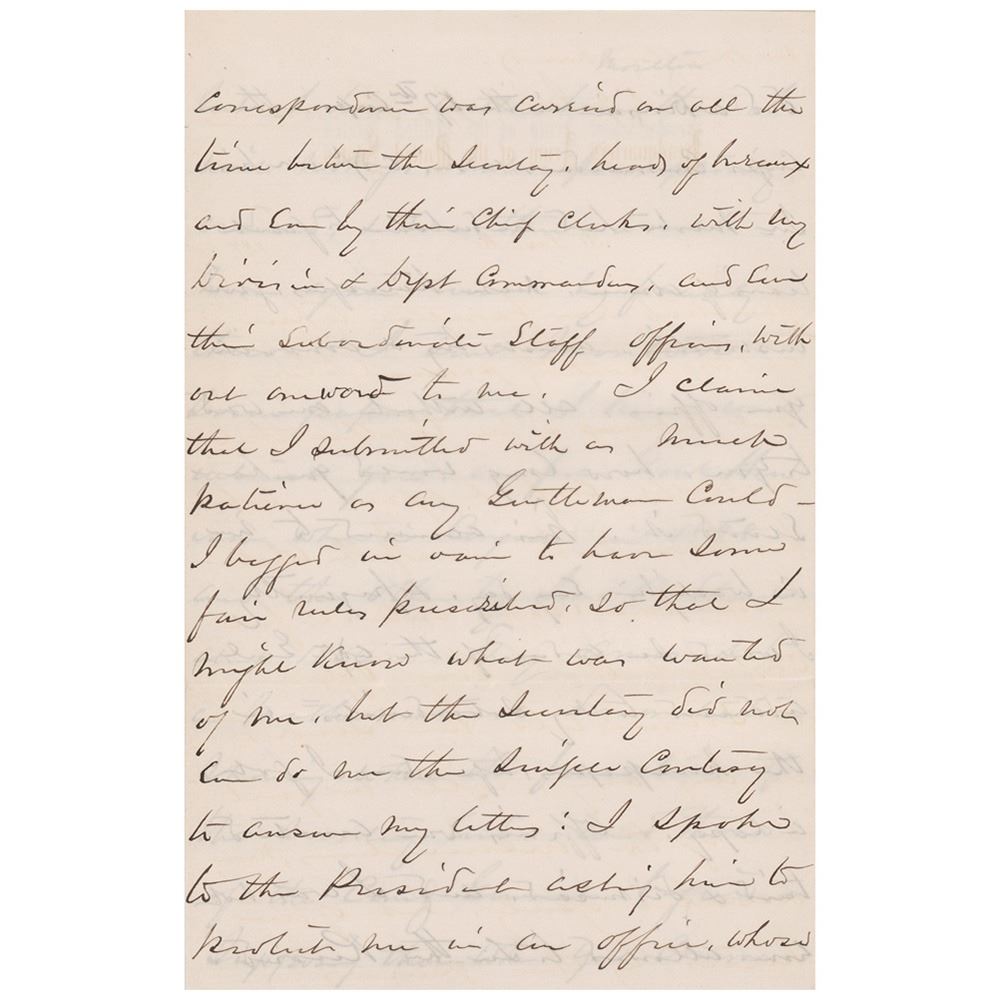 correspondence was carried on all the
time between the Secretary, heads of bureaux
and even by their Chief Clerks, with my
Division & Dept Commanders, and even
their subordinate Staff officers, with
out one word to me. I claim
that I submitted with as much
patience as any Gentleman could -
I begged in vain to have some
fair rules prescribed, so that I
might know what was wanted
of me, but the Secretary did not
even do me the simple Courtesy
to answer my letters: I spoke
to the President asking him to
protect me in an office, whose